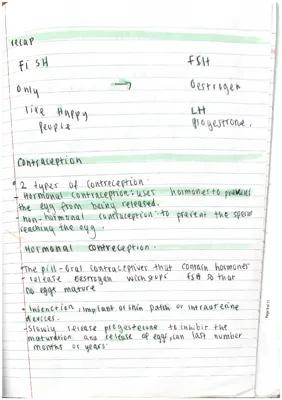 recap
Fi SH FSH
only → Oestrogen
like Happy LH
people progestrone.
Contraception
2 types of contreception.
- Hormonal contraception: uses hormones to prevent
the egg from being released.
- non-hormonal contraception: to prevent the sperm
reaching the egg.
Hormonal contreception.
- The pill - oral contraceptives that contain hormones
- release oestrogen which stops FSH so that
no eggs mature
- Injection, implant or skin patch or intrauterine
devices.
- Slowly release progesterone to inhibit the
maturation and release of eggs, can last number
months or years.